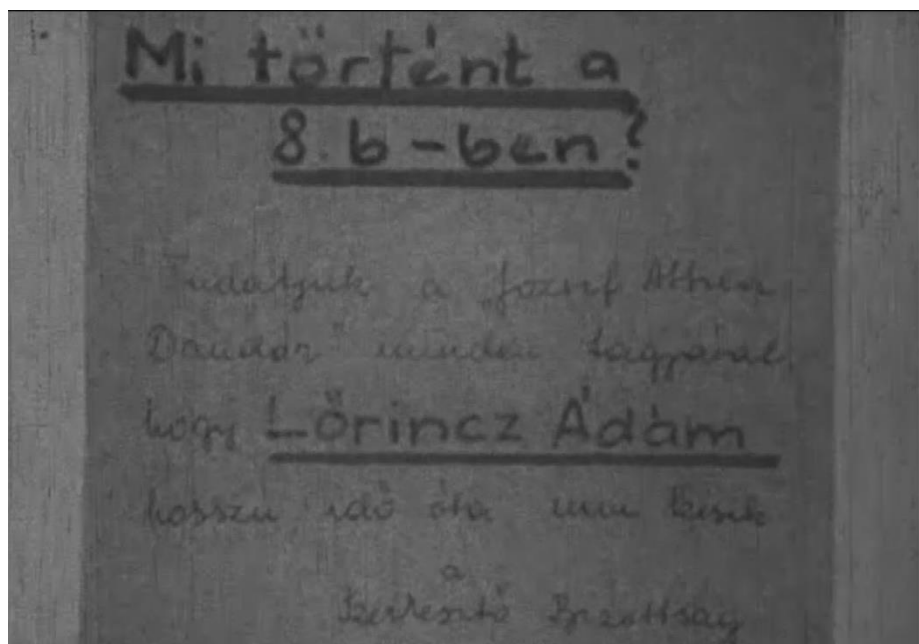 Mi történt a
8.b-ben?
Tudatjuk a "József Attila
minden tagjával,
hogy Lőrincz Ádám
hosszú idő óta nem késik
a
Szerkesztő Bizottság